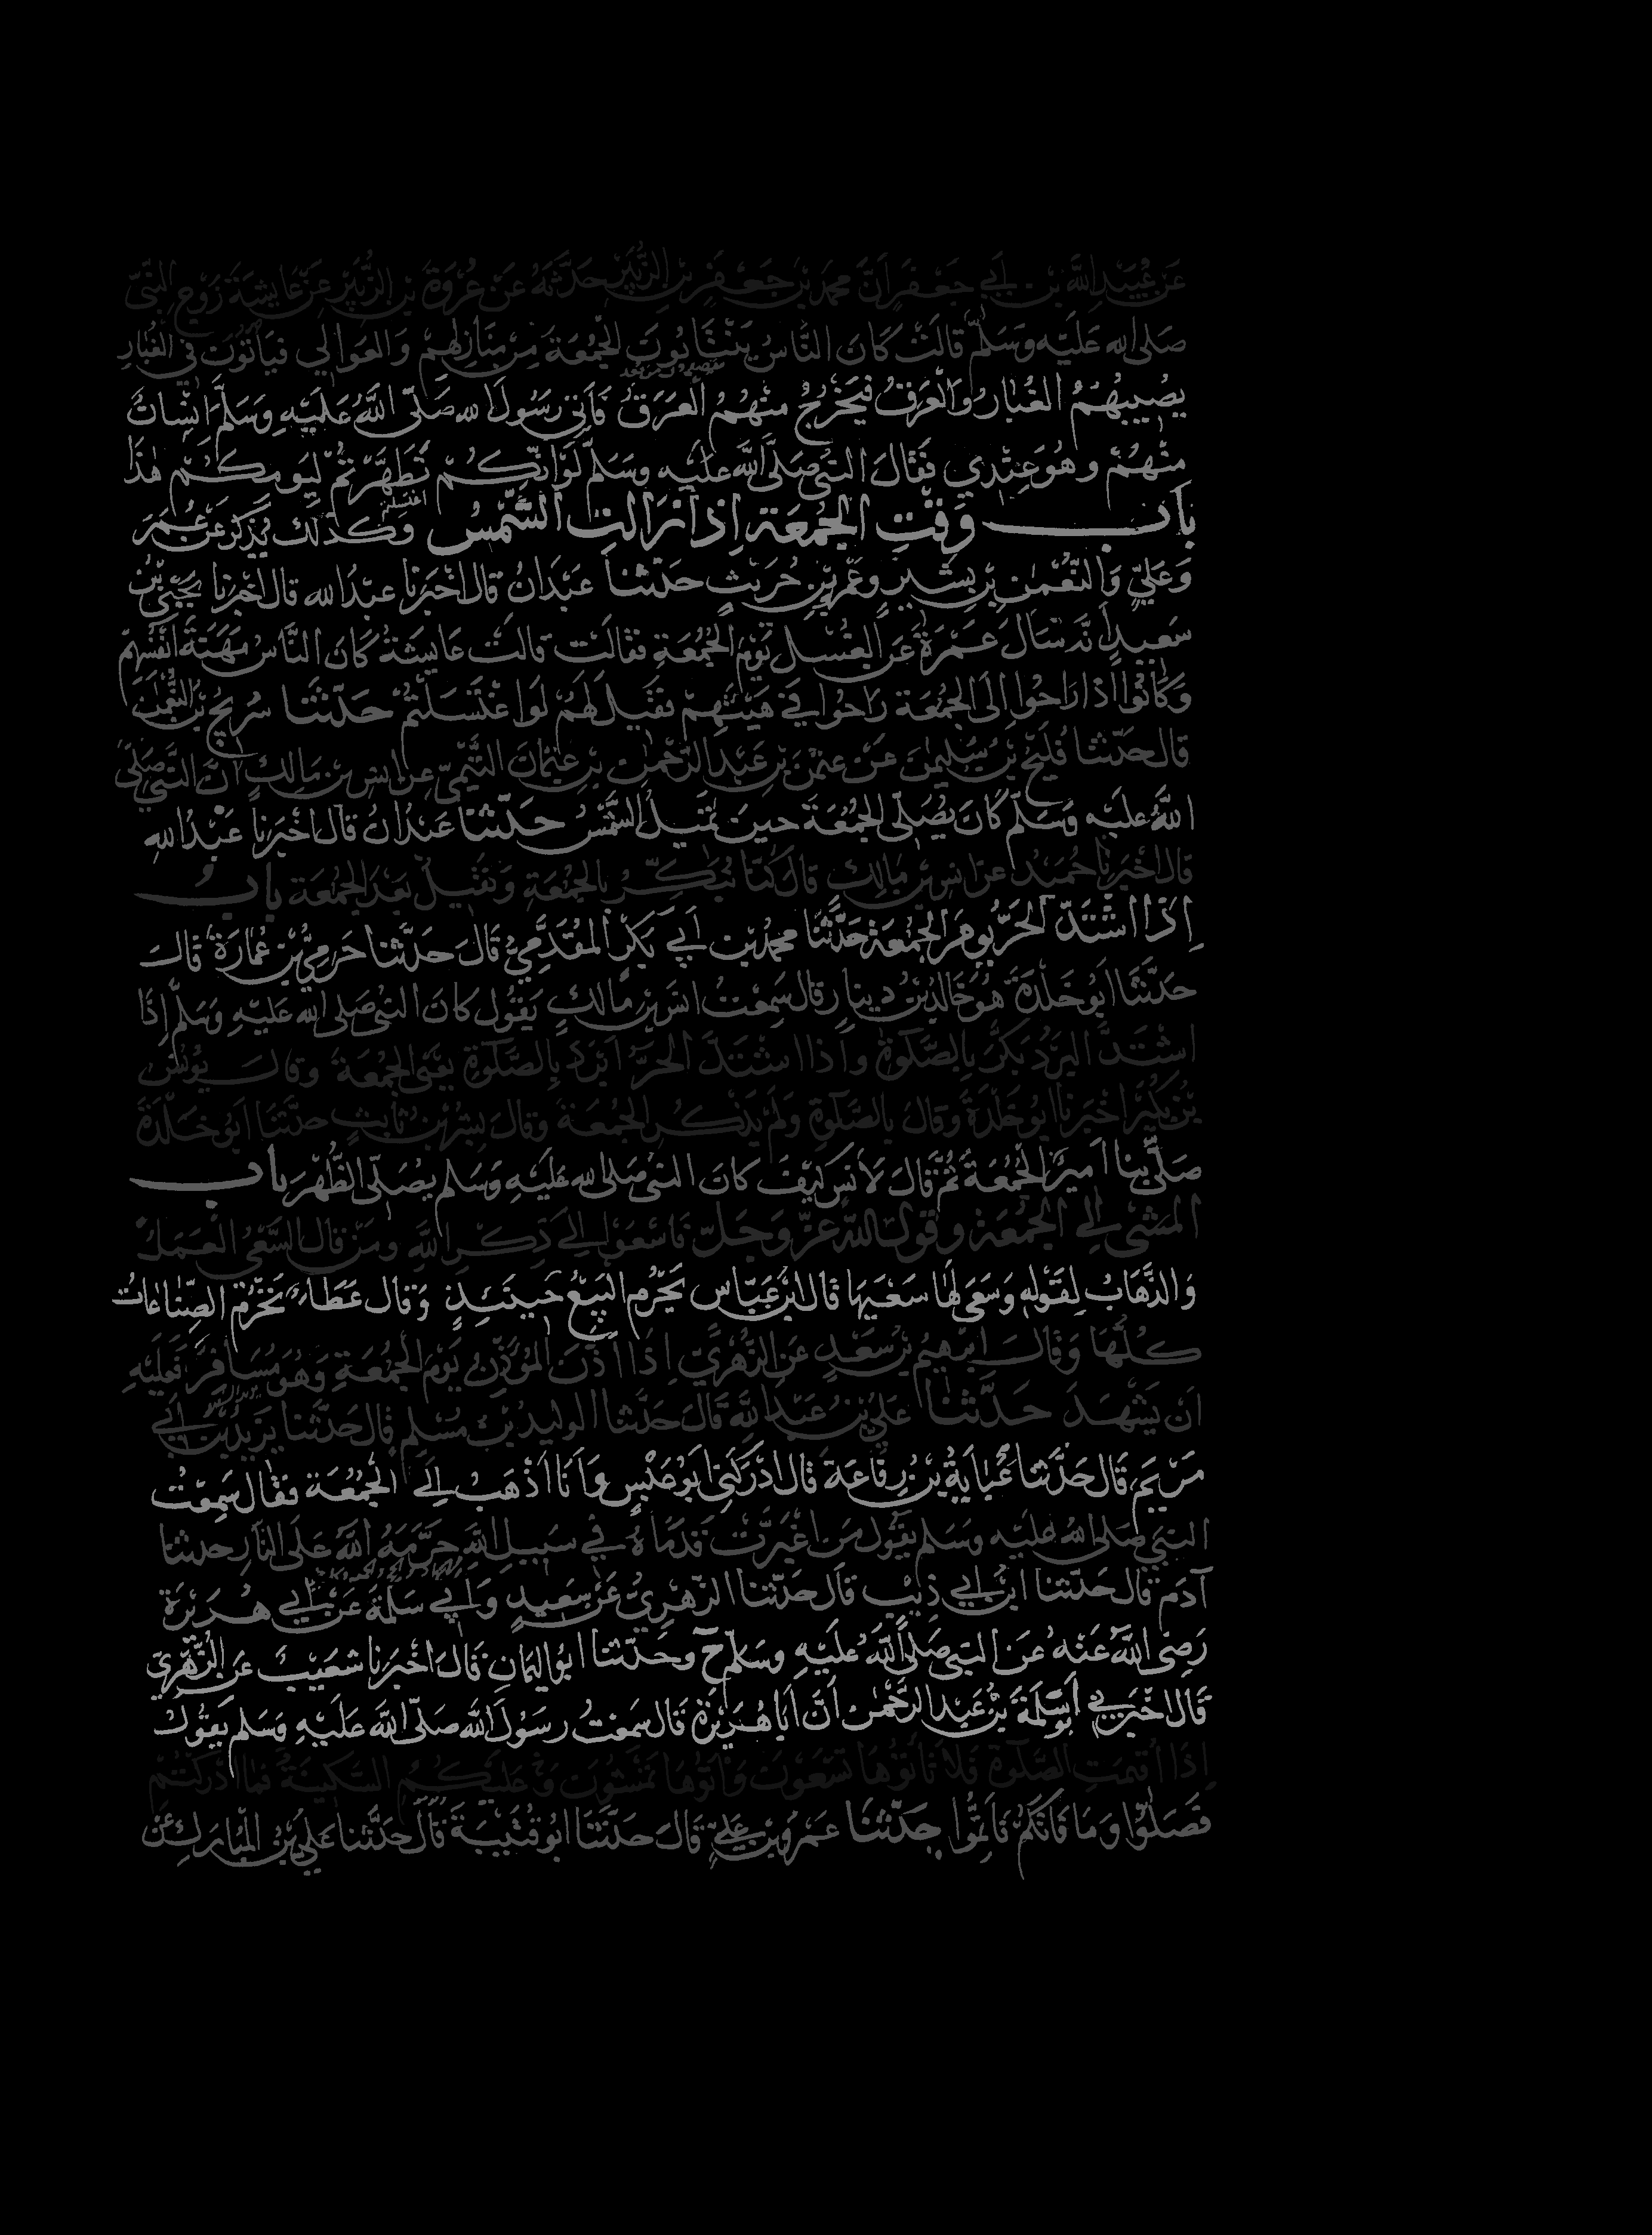 عَن عُبَيْدِ اللَّهِ بن أبي جَعْفَرٍ أَنَّ محمد بن جَعْفَرِ بن الزُّبَيْرِ حَدَّثَهُ عَنْ عُرْوَةَ بن الزُّبَيْرِ عَنْ عَايِشَةَ زَوْجِ النَّبِيّ
صَلى الله عَليْهِ وَسَلمْ قالتْ كانَ النَّاسُ يَنْتَابُوْنَ الجُمُعَةَ مِنْ مَنَازِلهِمْ وَالعَوَالي فيَأتوْن في الغُبَارِ
يُصيْبُهُمُ الغُبَارُ وَالعَرَقُ فيَخرُجُ مِنْهُمُ العَرَقُ فَأتى رَسُولَ الله صَلَّى اللَّهُ عَلَيْهِ وَسَلَّمَ انْسَانٌ
مِنْهُمْ وهُوَ عِنْدِي فَقَالَ النبيُّ صَلَّى اللَّه عَلَيْهِ وسَلم لَوْ أنَّكُمْ تَطَهَّرْتُمْ لِيَوْمِكُمْ هٰذَا
باب وَقْتِ الجُمُعَة اِذَا زَالَتِ الشَّمْسُ وَكَذَلك يُذْكَرُ عَنْ عُمَرَ
وَعَليٍّ وَالنُّعْمٰنِ بْنِ بَشِيْرٍ وَعَمْرِو بْنِ حُرَيْثٍ حَدَّثنا عَبْدَانُ قال اخْبَرَنا عبْدُ الله قال اخْبَرنا يَحْيَى بنُ
سَعيدٍ انَّهُ سَأَلَ عَمْرَةَ عَنِ الغُسْلِ يَوْمَ الجُمُعَةِ فقالت قالتْ عَايشَةُ كَانَ النَّاسُ مَهَنَةَ انْفُسِهِمْ
وَكَانُوْا اذَا رَاحُوا الى الجُمُعَة رَاحُوا في هَيْئَتِهِمْ فَقِيلَ لهُمْ لَوِ اغْتَسَلْتُمْ حَدَّثَنَا سُرَيْجُ بْنُ النُّعْمٰنِ
قال حَدَّثنا فُلَيْحُ بْنُ سُلَيْمٰنَ عَنْ عثمٰنَ بْنِ عَبْدِ الرَّحْمٰنِ بْنِ عُثْمَانَ التَّيْمِيّ عن انس بْنِ مَالِكٍ انَّ النَّبيَّ صَلى
اللَّهُ عليْه وَسَلّم كَانَ يُصَلّى الجُمُعَةَ حينَ تَمِيْلُ الشَّمْسُ حَدَّثنا عَبْدَانُ قال اخْبَرَنا عَبْدُ اللهِ
قال اخْبَرَنا حُمَيْدٌ عَن انَسِ بْنِ مَالِكٍ قال كُنَّا نُبَكِّرُ بالجُمُعَةِ وَنَقِيْلُ بَعْدَ الجُمُعَة باب
اِذَا اشْتَدَّ الحَرُّ يومَ الجُمُعَة حَدَّثَنَا محمدُ بْن أبي بَكْرٍ المُقَدَّمِيُّ قَالَ حَدَّثنا حَرَمِيُّ بْنُ عُمَارَةَ قالَ
حَدَّثَنَا أبُو خَلْدَةَ هُوَ خَالِدُ بْنُ دِينارٍ قال سَمِعْتُ انَسَ بْنَ مَالكٍ يَقُول كَانَ النبيُّ صَلى الله عَليْهِ وَسَلّم إذَا
اشْتَدَّ البَرْدُ بَكَّرَ بِالصَّلوٰةِ واذا اشْتَدَّ الحَرُّ ابْرَدَ بِالصَّلوٰةِ يَعْني الجُمُعَةَ وقالَ يُونُسُ
بْنُ بُكَيْرٍ اخْبَرَنا ابُو خَلْدَةَ وَقالَ بالصَّلوٰةِ وَلَمْ يَذْكُرِ الجُمُعَةَ وقالَ بِشْرُ بْنُ ثابتٍ حدَّثَنَا ابُو خَلْدَةَ
صَلَّى بِنا اَمِيْرٌ الجُمُعَةَ ثُمَّ قَالَ لِانَسٍ كَيْفَ كَانَ النبيُّ صَلى الله عَلَيْهِ وَسَلم يُصَلِّي الظُّهْرَ باب
المَشْي إلى الجُمُعَة وقوْل اللَّه عَزَّ وَجَلَّ فَاسْعَوْا اِلَى ذِكْرِ اللَّهِ ومَنْ قال السَّعْيُ العَمَلُ
وَالذَّهَابُ لِقَوْلِهِ وَسَعَى لَهَا سَعْيَهَا قَال ابْنُ عَبَّاسٍ يَحْرُم البَيْعُ حِيْنَئِذٍ وَقال عَطَاءٌ تَحْرُمُ الصِّنَاعَاتُ
كُلُّهَا وَقالَ ابرٰهيمُ بْنُ سَعْدٍ عَن الزُّهْريّ اِذَا اَذَّنَ المُؤَذِّنُ يَوْمَ الجُمُعَةِ وَهُوَ مُسَافِرٌ فَعَلَيْهِ
اَنْ يَشْهَدَ حَدَّثنا عَلِيُّ بْنُ عَبْدِ اللَّهِ قَالَ حَدَّثنا الوليدُ بْنُ مُسْلِمٍ قَال حَدَّثَنا يَزِيْدُ بْنُ أبي
مَرْيَمَ قال حَدَّثنا عَبَايَةُ بْنُ رِفاعَةَ قال ادْرَكَنِي ابُو عَبْسٍ وَاَنَا اَذْهَبُ اِلَى الجُمُعَة فقال سَمِعْتُ
النبيَّ صَلى اللهُ عليْهِ وَسَلم يقُولُ مَنِ اغْبَرَّتْ قَدَمَاهُ في سَبِيلِ اللَّهِ حَرَّمَهُ اللَّهُ عَلَى النَّارِ حدثنا
آدَم قال حَدَّثنا ابنُ أبي ذِئْبٍ قَالَ حَدَّثنا الزُّهْرِيُّ عَنْ سَعِيدٍ وَابِي سَلَمَةَ عَنْ أبي هُرَيْرَةَ
رَضِيَ اللَّهُ عَنْهُ عَن النبيّ صَلَّى اللَّهُ عَليْهِ وسَلم ح وحَدَّثنا ابُو اليَمَانِ قَالَ اخْبَرَنا شعَيْبٌ عَنِ الزُّهْرِيّ
قَالَ اخْبَرَنِي أَبُو سَلَمَةَ بْنُ عَبْدِ الرَّحْمٰنِ أَنَّ ابَا هُرَيْرَةَ قَال سَمِعْتُ رسَوُلَ الله صَلَّى اللَّه عَلَيْهِ وَسَلم يَقُولُ
اِذَا أُقِيْمَتِ الصَّلوٰةُ فَلا تَاتوُهَا تَسْعَوْنَ وَاتُوْهَا تَمْشُوْنَ وَعَلَيْكُمُ السَّكيْنَةُ فَمَا ادْرَكْتُمْ
فَصَلُّوْا وَمَا فَاتَكُمْ فَاتِمُّوا حَدَّثنَا عَمْرُو بْنُ عَلِيٍّ قَالَ حَدَّثَنَا ابُو قُتَيْبَةَ قال حَدَّثنا عَلِيُّ بْنُ المُبَارَكِ عَنْ